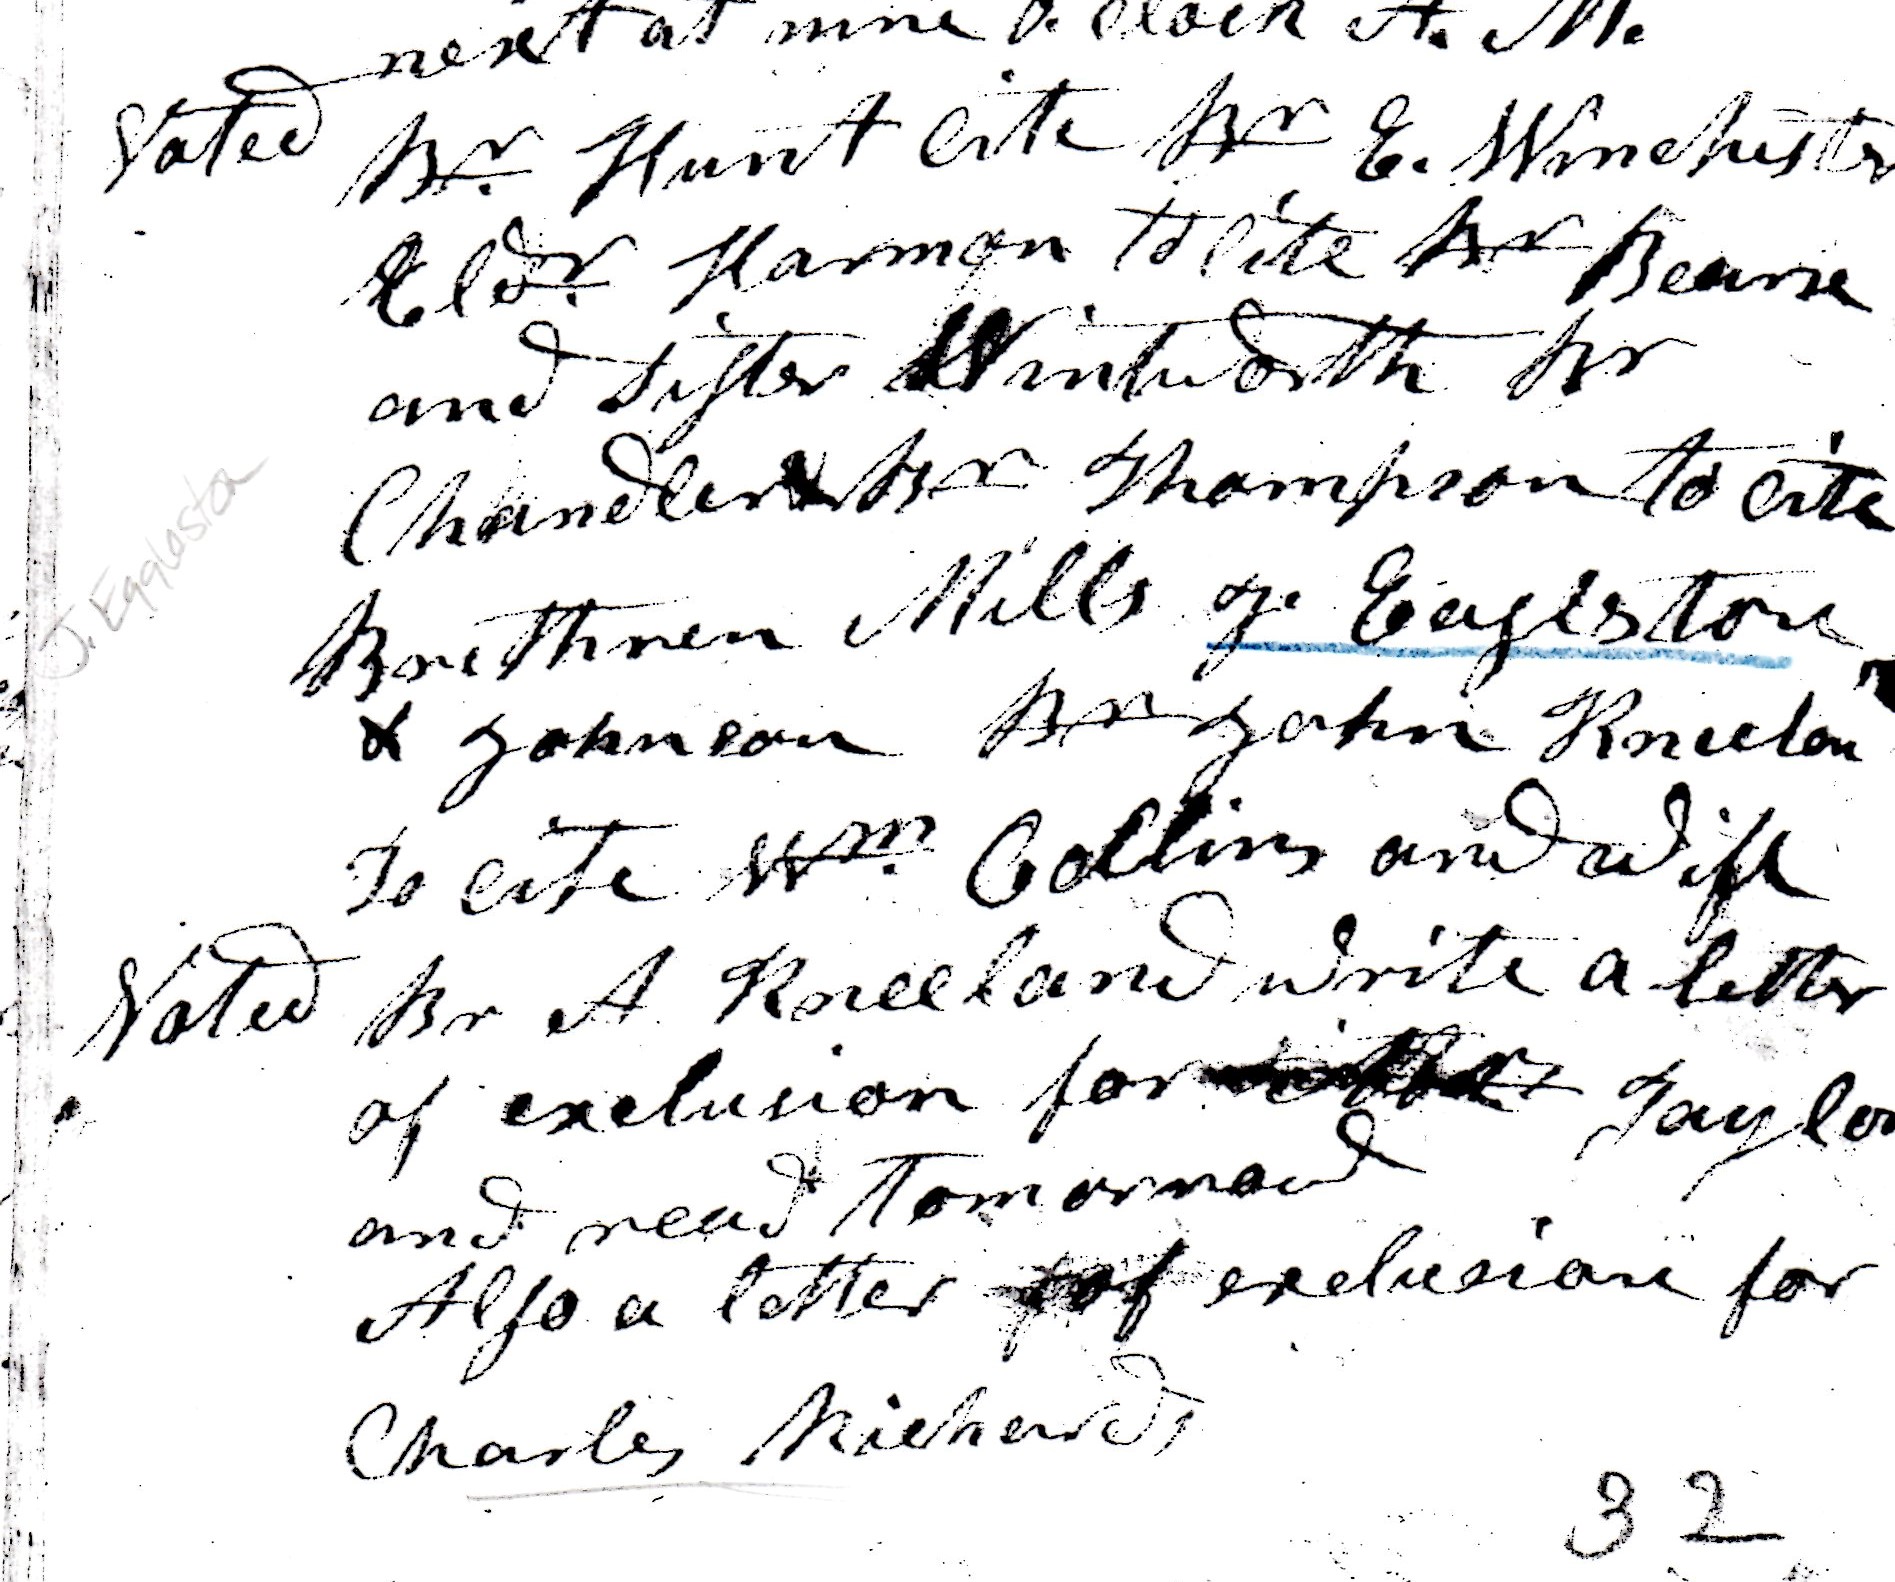 next at nine o. clock A. M.
Voted Br. Hunt cite Br E. Winchester
Eldr. Harmon to cite Br Bearse
and sister Wintworth Br
Chandler & Br Thompson to cite
Brethren Mills J. Eagleston
& Johnson Br John Kneelan
To cite Wm. Collins and wife
Voted Br A Kneeland write a letter
of exclusion for Taylor
and read Tomorrow
Also a letter of exclusion for
Charles Richards
J. Eggleston
32